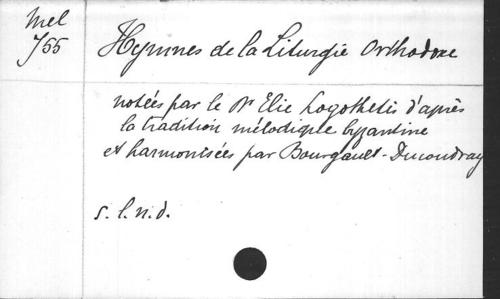 Mel
755
Hymnes de la Liturgie Orthodoxe
notées par le Dr Elie Logothetis d'après
la tradition mélodique byzantine
et harmonisées par Bourgault-Ducoudray
s.l.n.d.